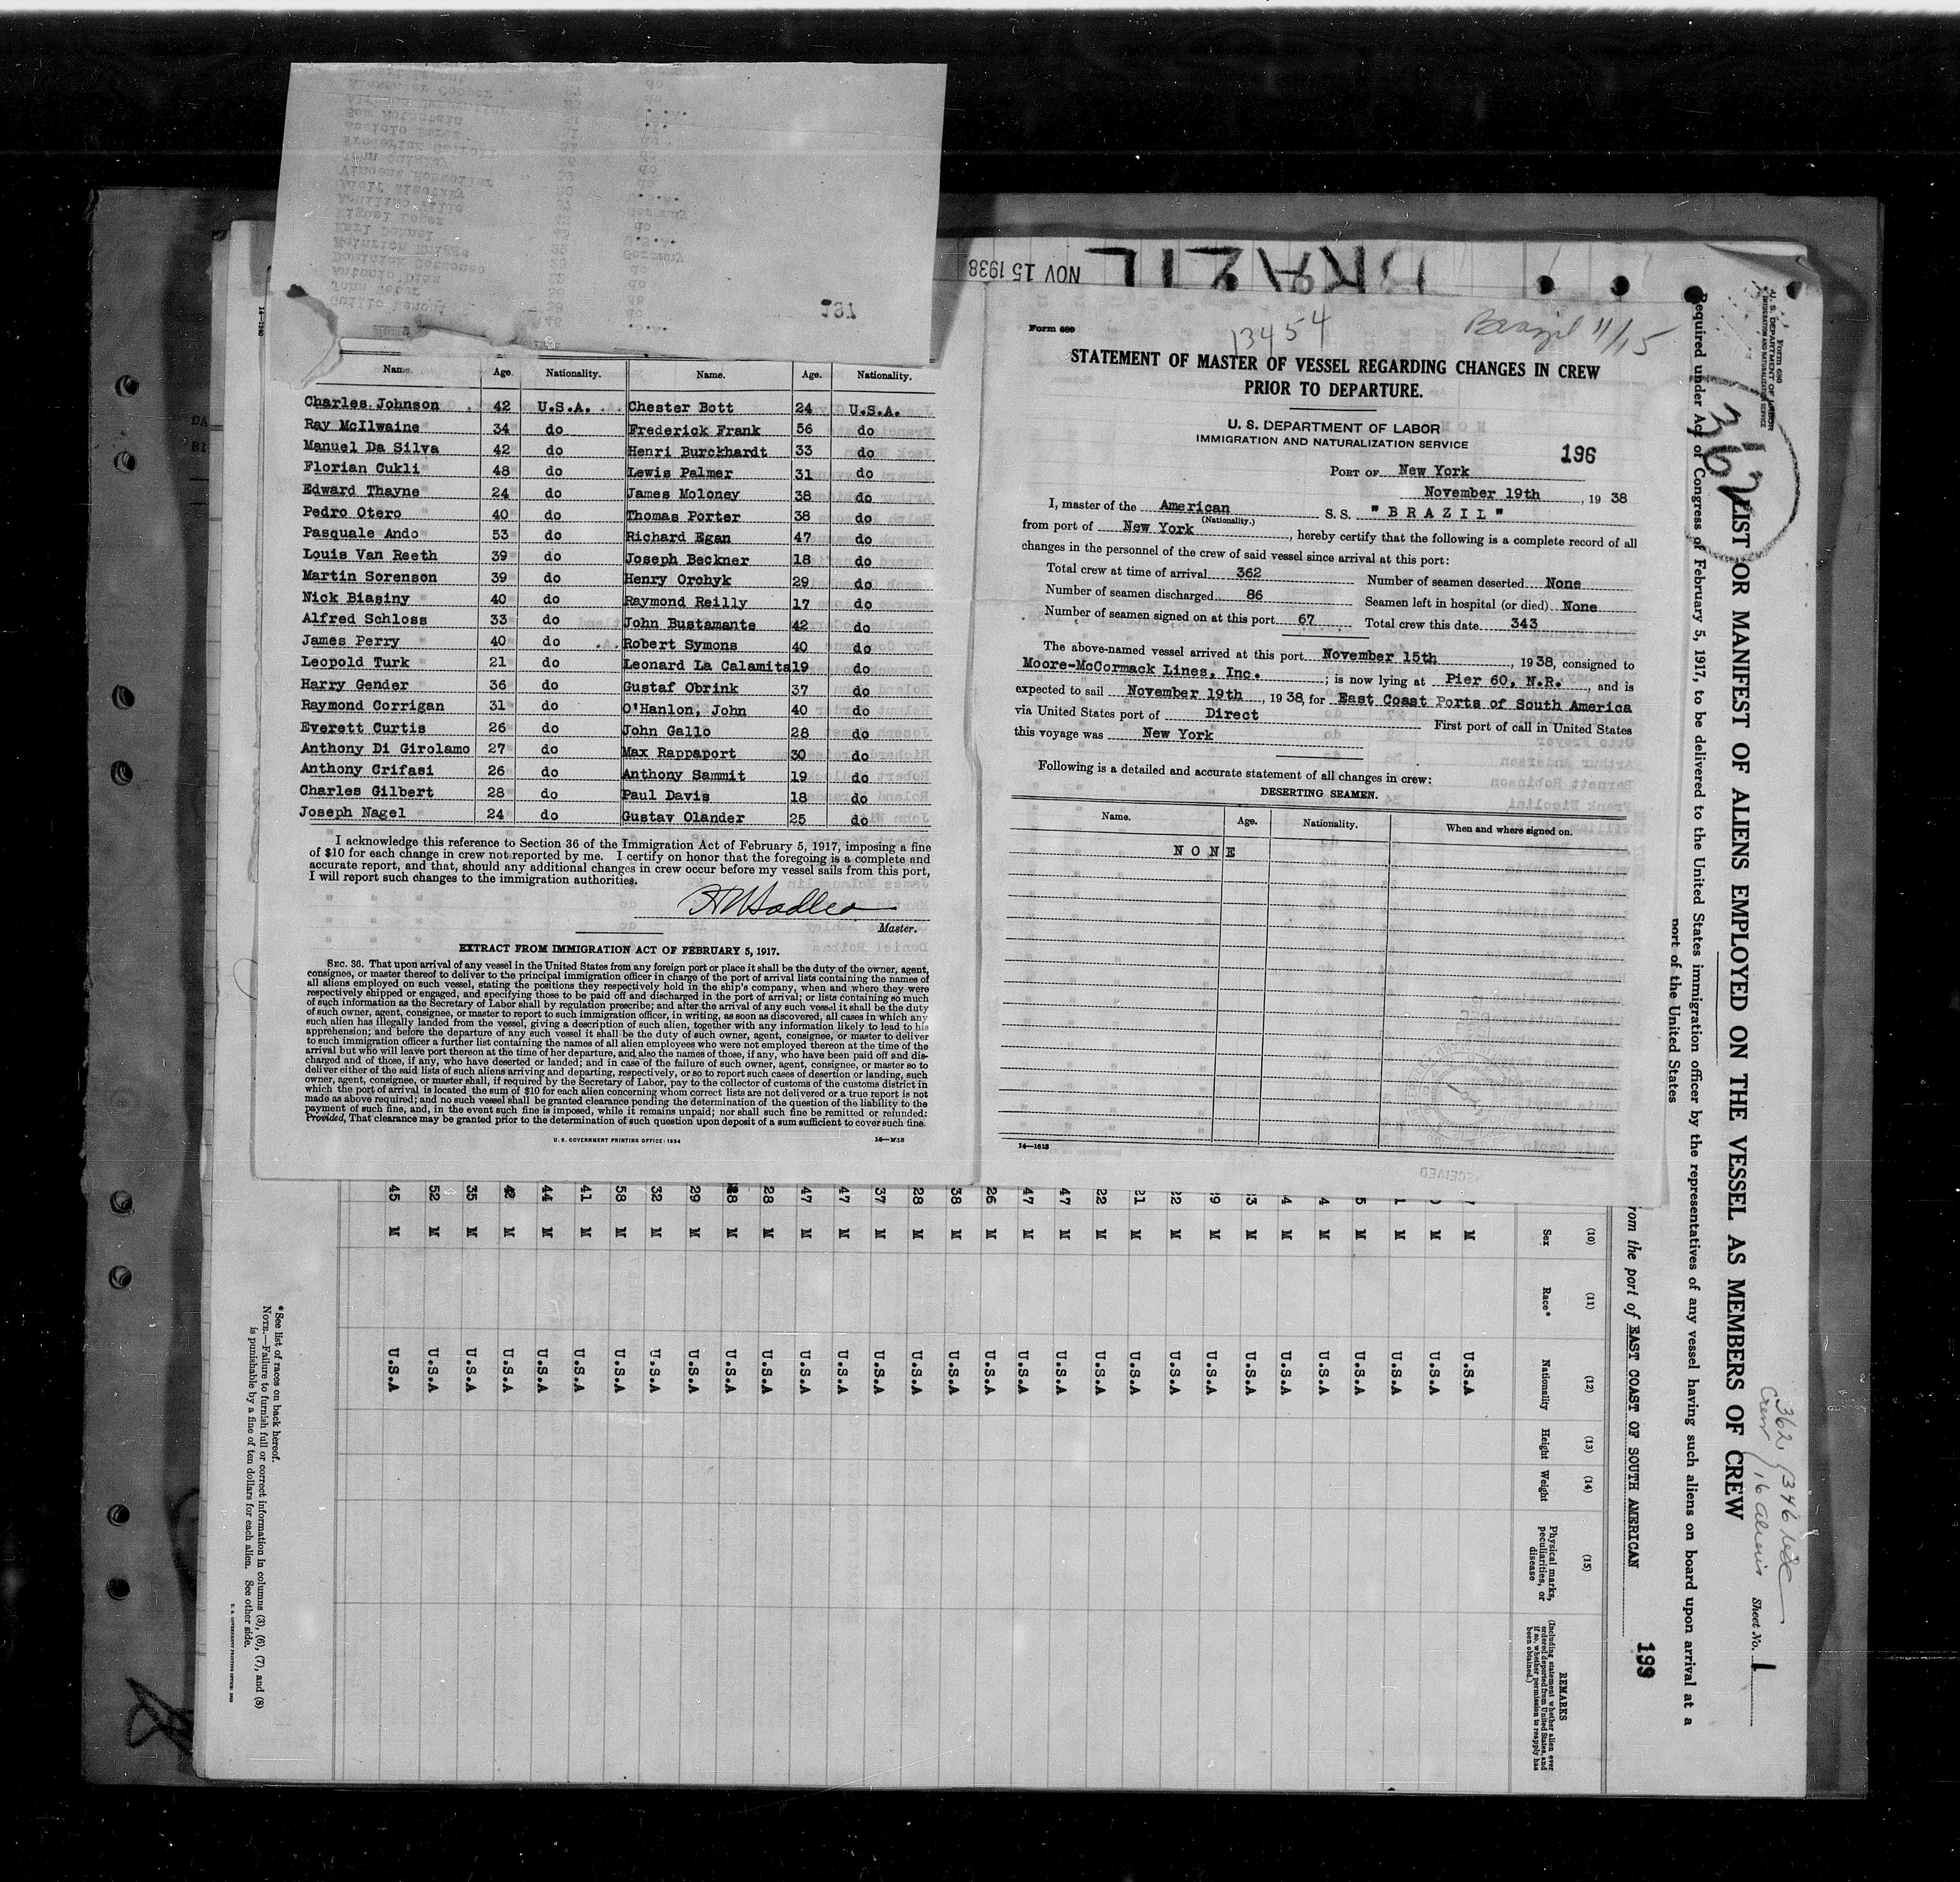 NOV 15 1938
BRAZIL
197
Name. Age. Nationality. Name. Age. Nationality.
Charles Johnson 42 U.S.A. Chester Bott 24 U.S.A.
Ray McIlwaine 34 do Frederick Frank 56 do
Manuel Da Silva 42 do Henri Burckhardt 33 do
Florian Cukli 48 do Lewis Palmer 31 do
Edward Thayne 24 do James Moloney 38 do
Pedro Otero 40 do Thomas Porter 38 do
Pasquale Ando 53 do Richard Egan 47 do
Louis Van Reeth 39 do Joseph Beckner 18 do
Martin Sorenson 39 do Henry Orchyk 29 do
Nick Biasiny 40 do Raymond Reilly 17 do
Alfred Schloss 33 do John Bustamante 42 do
James Perry 40 do Robert Symons 40 do
Leopold Turk 21 do Leonard La Calamita 19 do
Harry Gender 36 do Gustaf Obrink 37 do
Raymond Corrigan 31 do O'Hanlon, John 40 do
Everett Curtis 26 do John Gallo 28 do
Anthony Di Girolamo 27 do Max Rappaport 30 do
Anthony Crifasi 26 do Anthony Sammit 19 do
Charles Gilbert 28 do Paul Davis 18 do
Joseph Nagel 24 do Gustav Olander 25 do
I acknowledge this reference to Section 36 of the Immigration Act of February 5, 1917, imposing a fine
of $10 for each change in crew not reported by me. I certify on honor that the foregoing is a complete and
accurate report, and that, should any additional changes in crew occur before my vessel sails from this port,
I will report such changes to the immigration authorities.
Master.
EXTRACT FROM IMMIGRATION ACT OF FEBRUARY 5, 1917.
SEC. 36. That upon arrival of any vessel in the United States from any foreign port or place it shall be the duty of the owner, agent,
consignee, or master thereof to deliver to the principal immigration officer in charge of the port of arrival lists containing the names of
all aliens employed on such vessel, stating the positions they respectively hold in the ship's company, when and where they were
respectively shipped or engaged, and specifying those to be paid off and discharged in the port of arrival; or lists containing so much
of such information as the Secretary of Labor shall by regulation prescribe; and after the arrival of any such vessel it shall be the duty
of such owner, agent, consignee, or master to report to such immigration officer, in writing, as soon as discovered, all cases in which any
such alien has illegally landed from the vessel, giving a description of such alien, together with any information likely to lead to his
apprehension; and before the departure of any such vessel it shall be the duty of such owner, agent, consignee, or master to deliver
to such immigration officer a further list containing the names of all alien employees who were not employed thereon at the time of the
arrival but who will leave port thereon at the time of her departure, and also the names of those, if any, who have been paid off and dis-
charged and of those, if any, who have deserted or landed; and in case of the failure of such owner, agent, consignee, or master so to
deliver either of the said lists of such aliens arriving and departing, respectively, or so to report such cases of desertion or landing, such
owner, agent, consignee, or master shall, if required by the Secretary of Labor, pay to the collector of customs of the customs district in
which the port of arrival is located the sum of $10 for each alien concerning whom correct lists are not delivered or a true report is not
made as above required; and no such vessel shall be granted clearance pending the determination of the question of the liability to the
payment of such fine, and, in the event such fine is imposed, while it remains unpaid; nor shall such fine be remitted or refunded:
Provided, That clearance may be granted prior to the determination of such question upon deposit of a sum sufficient to cover such fine.
U. S. GOVERNMENT PRINTING OFFICE: 1934 14—1613
Form 689
13454
Brazil 11/15
STATEMENT OF MASTER OF VESSEL REGARDING CHANGES IN CREW
PRIOR TO DEPARTURE.
U. S. DEPARTMENT OF LABOR
IMMIGRATION AND NATURALIZATION SERVICE
196
PORT OF New York
November 19th, 19 38
I, master of the American S.S. "BRAZIL"
(Nationality.)
from port of New York, hereby certify that the following is a complete record of all
changes in the personnel of the crew of said vessel since arrival at this port:
Total crew at time of arrival 362 Number of seamen deserted None
Number of seamen discharged 86 Seamen left in hospital (or died) None
Number of seamen signed on at this port 67 Total crew this date 343
The above-named vessel arrived at this port November 15th, 19 38, consigned to
Moore-McCormack Lines, Inc. ; is now lying at Pier 60, N.R., and is
expected to sail November 19th, 19 38, for East Coast Ports of South America
via United States port of Direct First port of call in United States
this voyage was New York
Following is a detailed and accurate statement of all changes in crew:
DESERTING SEAMEN.
Name. Age. Nationality. When and where signed on.
NONE
14—1613
U. S. DEPARTMENT OF LABOR
IMMIGRATION AND NATURALIZATION SERVICE
Form 680
362
LIST OR MANIFEST OF ALIENS EMPLOYED ON THE VESSEL AS MEMBERS OF CREW
Required under Act of Congress of February 5, 1917, to be delivered to the United States immigration officer by the representatives of any vessel having such aliens on board upon arrival at a
port of the United States
362 346 USC
Crew 16 aliens
Sheet No. 1
from the port of EAST COAST OF SOUTH AMERICAN
199
(10) (11) (12) (13) (14) (15)
Sex Race* Nationality Height Weight Physical marks, peculiarities, or disease
REMARKS
(Including statement whether alien ever ordered deported from United States, and if so, whether permission to reapply has been obtained.)
M U.S.A
M U.S.A
M U.S.A
M U.S.A
M U.S.A
M U.S.A
M U.S.A
M U.S.A
M U.S.A
21 M U.S.A
22 M U.S.A
47 M U.S.A
47 M U.S.A
26 M U.S.A
38 M U.S.A
28 M U.S.A
37 M U.S.A
47 M U.S.A
47 M U.S.A
28 M U.S.A
M U.S.A
29 M U.S.A
32 M U.S.A
58 M U.S.A
41 M U.S.A
44 M U.S.A
M U.S.A
35 M U.S.A
52 M U.S.A
45 M U.S.A
*See list of races on back hereof.
NOTE.—Failure to furnish full or correct information in columns (3), (6), (7), and (8)
is punishable by a fine of ten dollars for each alien. See other side.